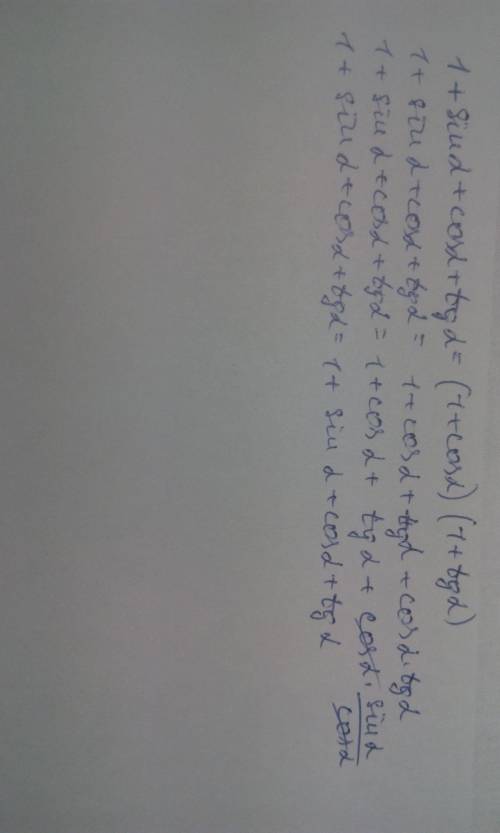 1 + sin α + cos α + tg α = (1 + cos α) (1 + tg α)
1 + sin α + cos α + tg α = 1 + cos α + tg α + cos α · tg α
1 + sin α + cos α + tg α = 1 + cos α + tg α + cos α · sin α / cos α
1 + sin α + cos α + tg α = 1 + sin α + cos α + tg α